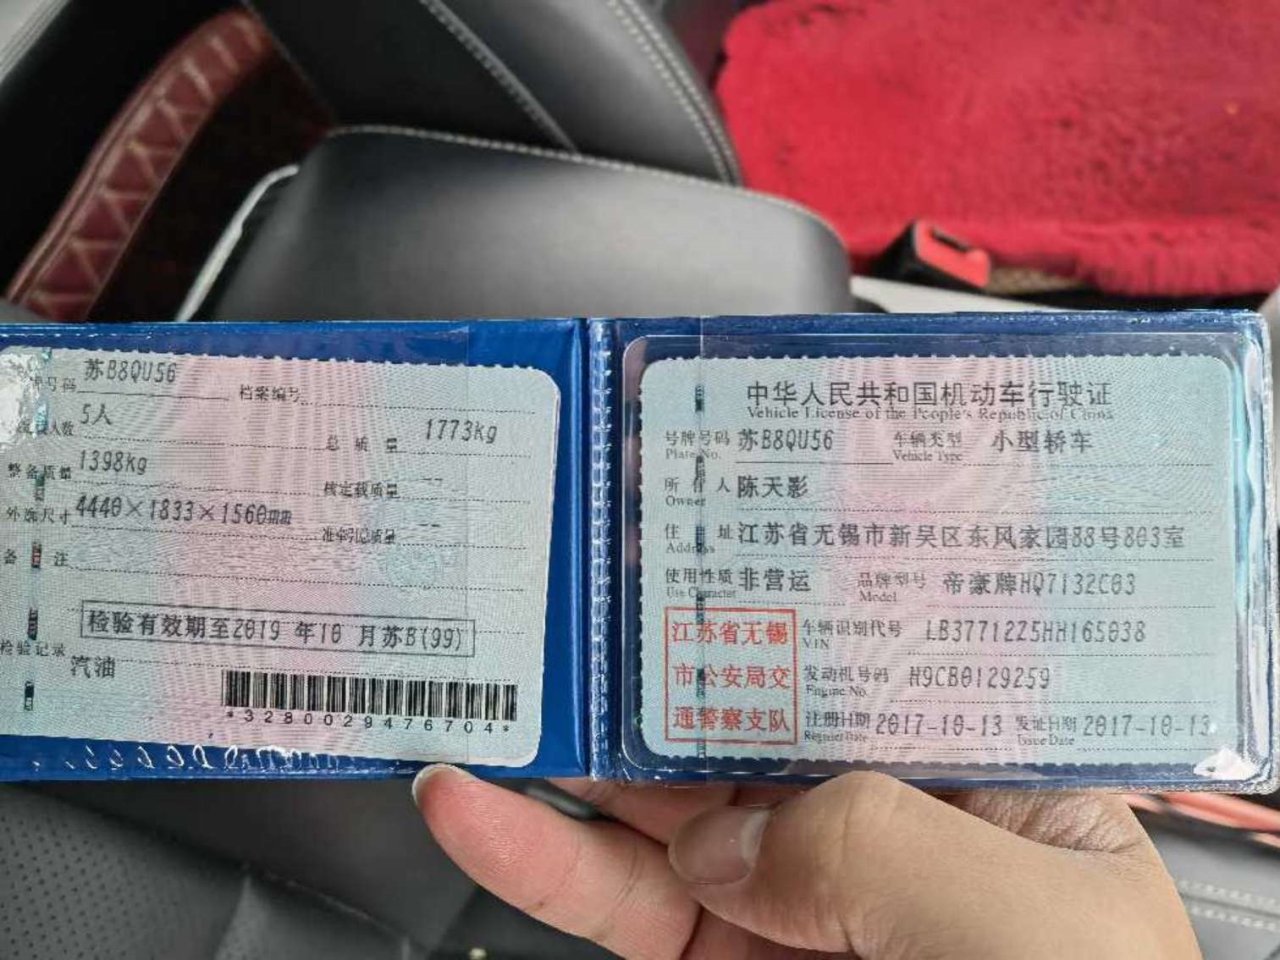 号码 苏B8QU56 档案编号
人数 5人 总质量 1773kg
整备质量 1398kg 核定载质量 --
外廓尺寸 4440×1833×1560mm 准牵引总质量 --
备注
检验有效期至2019 年10 月苏B(99)
检验记录 汽油
*3280029476704*
中华人民共和国机动车行驶证
Vehicle License of the People's Republic of China
号牌号码 苏B8QU56 车辆类型 小型轿车
Plate No. Vehicle Type
所有人 陈天影
Owner
住址 江苏省无锡市新吴区东风家园88号803室
Address
使用性质 非营运 品牌型号 帝豪牌HQ7132C03
Use Character Model
江苏省无锡
市公安局交
通警察支队
车辆识别代号 LB37712Z5HH165038
VIN
发动机号码 H9CB0129259
Engine No.
注册日期 2017-10-13 发证日期 2017-10-13
Register Date Issue Date